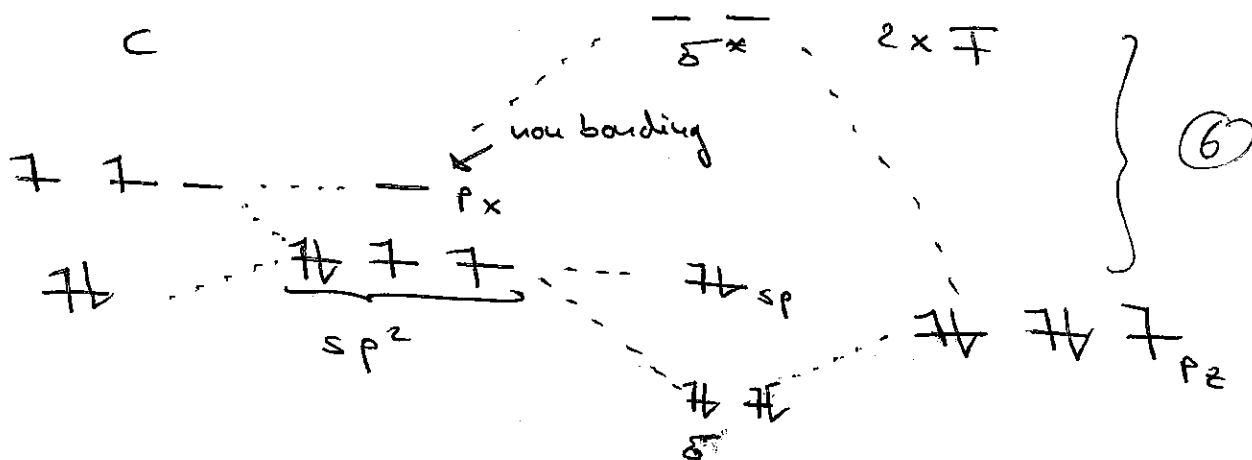 C σ* 2 x F
non bonding
6
px
sp
sp²
pz
σ